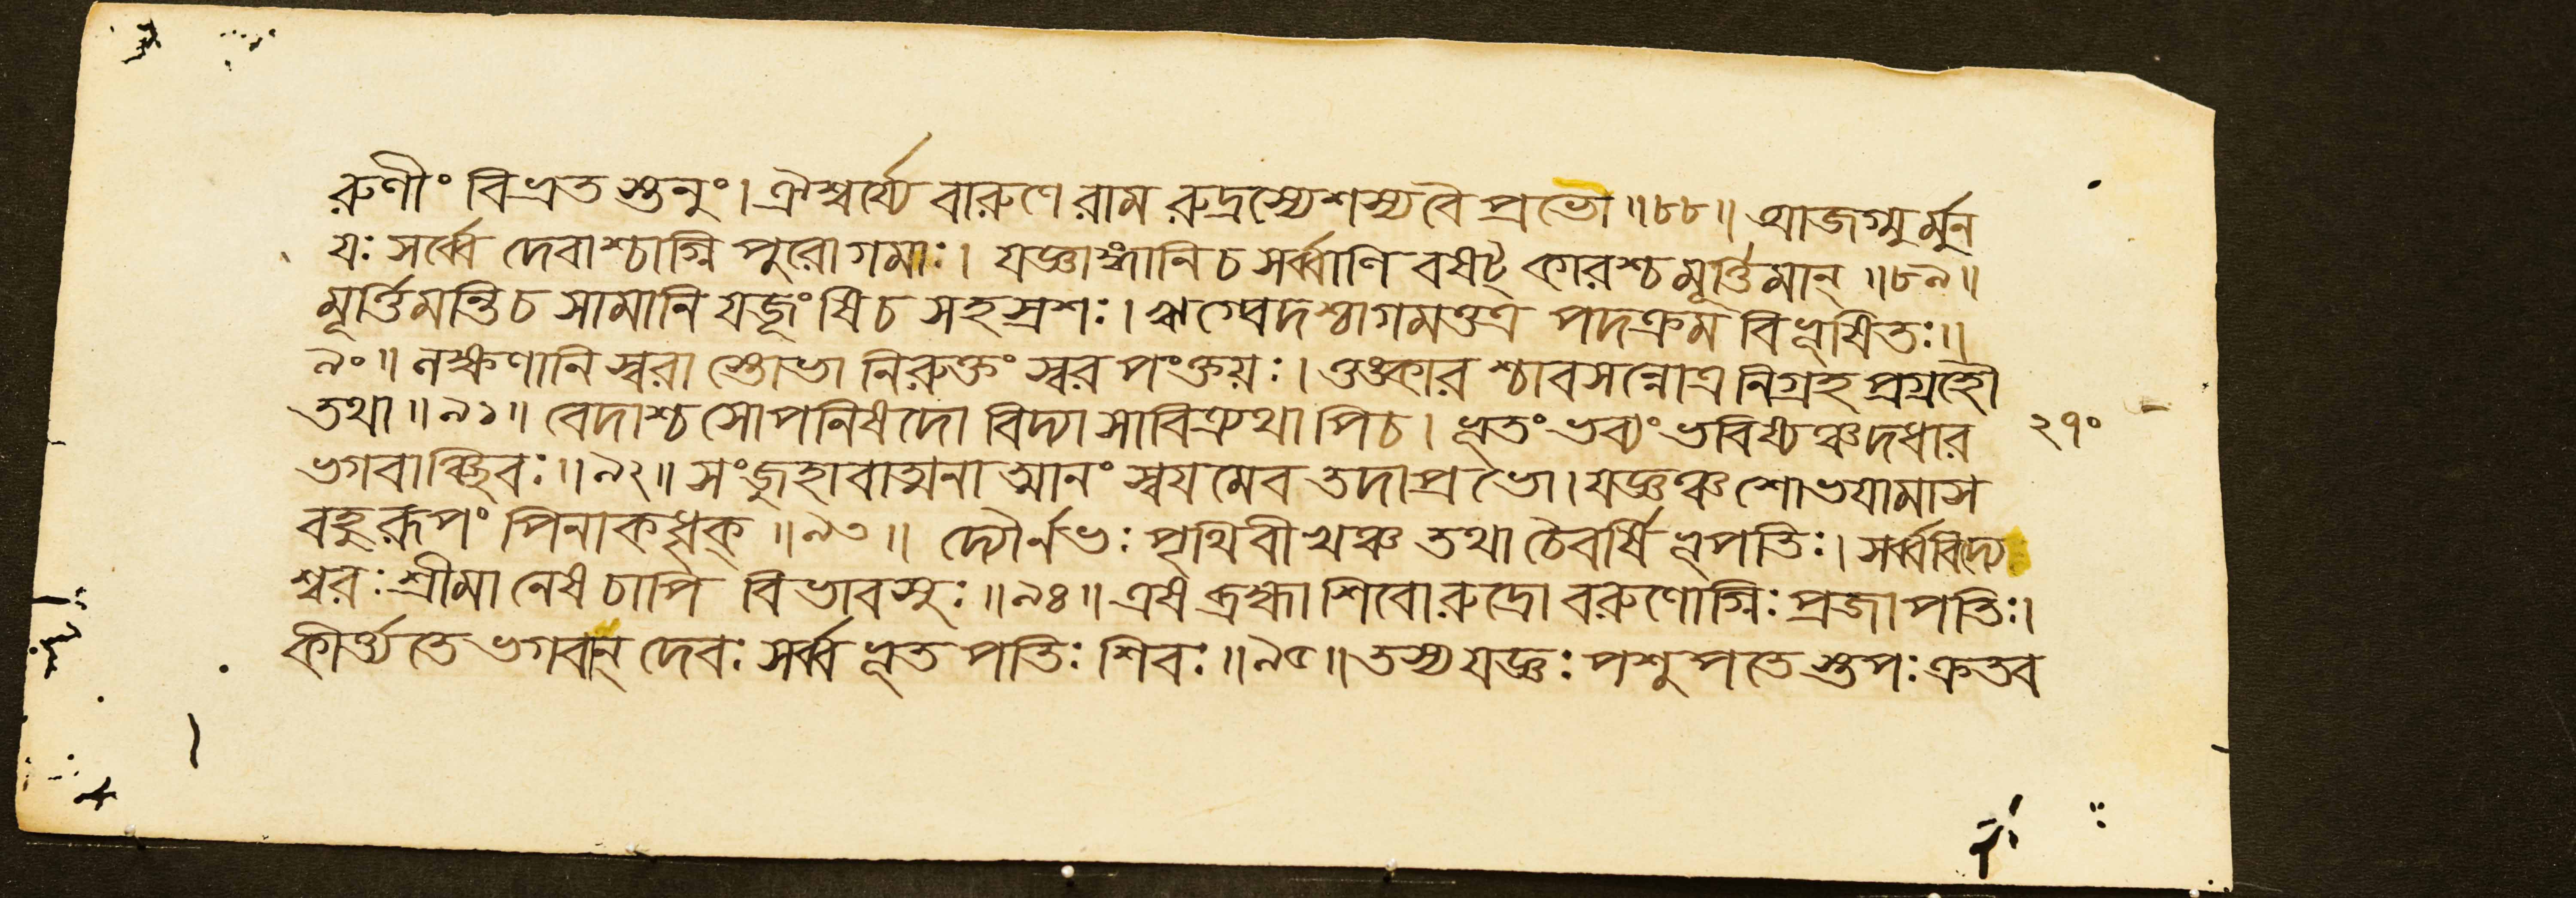 রুণীং বিভ্রত স্তনুং। ঐশ্বর্য্যে বারুণে রাম রুদ্রস্যেশস্য বৈ প্রভো ॥৮৮॥ আজগ্মু র্মুন
য়ঃ সর্ব্বে দেবাশ্চাগ্নি পুরোগমাঃ। যজ্ঞাঙ্গানি চ সর্ব্বাণি বষট্ কারশ্চ মূর্ত্তিমান্ ॥৮৯॥
মূর্ত্তিমন্তি চ সামানি যজূংষি চ সহস্রশঃ। ঋগ্বেদশ্চাগমত্তত্র পদক্রম বিভূষিতঃ॥
৯০॥ লক্ষণানি স্বরা স্তোভা নিরুক্তং স্বর পংক্তয়ঃ। ওঙ্কার শ্চাবসন্নেত্র নিগ্রহ প্রগ্রহৌ
তথা ॥৯১॥ বেদাশ্চ সোপনিষদো বিদ্যা সাবিত্র্যথাপি চ। ভূতং ভব্যং ভবিষ্যঞ্চ দধার
২৭০
ভগবাঞ্ছিবঃ॥৯২॥ সংজুহাবাত্মনা আনং স্বয়মেব তদা প্রভো। যজ্ঞঞ্চ শোভয়ামাস
বহুরূপং পিনাকধৃক্ ॥৯৩॥ দ্যৌর্নভঃ পৃথিবী খঞ্চ তথা চৈবর্ষি ভূপতিঃ। সর্ব্ববিদ্যে
শ্বরঃ শ্রীমানেষ চাপি বিভাবসুঃ ॥৯৪॥ এষ ব্রহ্মা শিবো রুদ্রো বরুণোগ্নিঃ প্রজাপতিঃ।
কীর্ত্ত্যতে ভগবান্ দেবঃ সর্ব্ব ভূত পতিঃ শিবঃ ॥৯৫॥ তস্য যজ্ঞঃ পশুপতে স্তপঃ ক্রতব